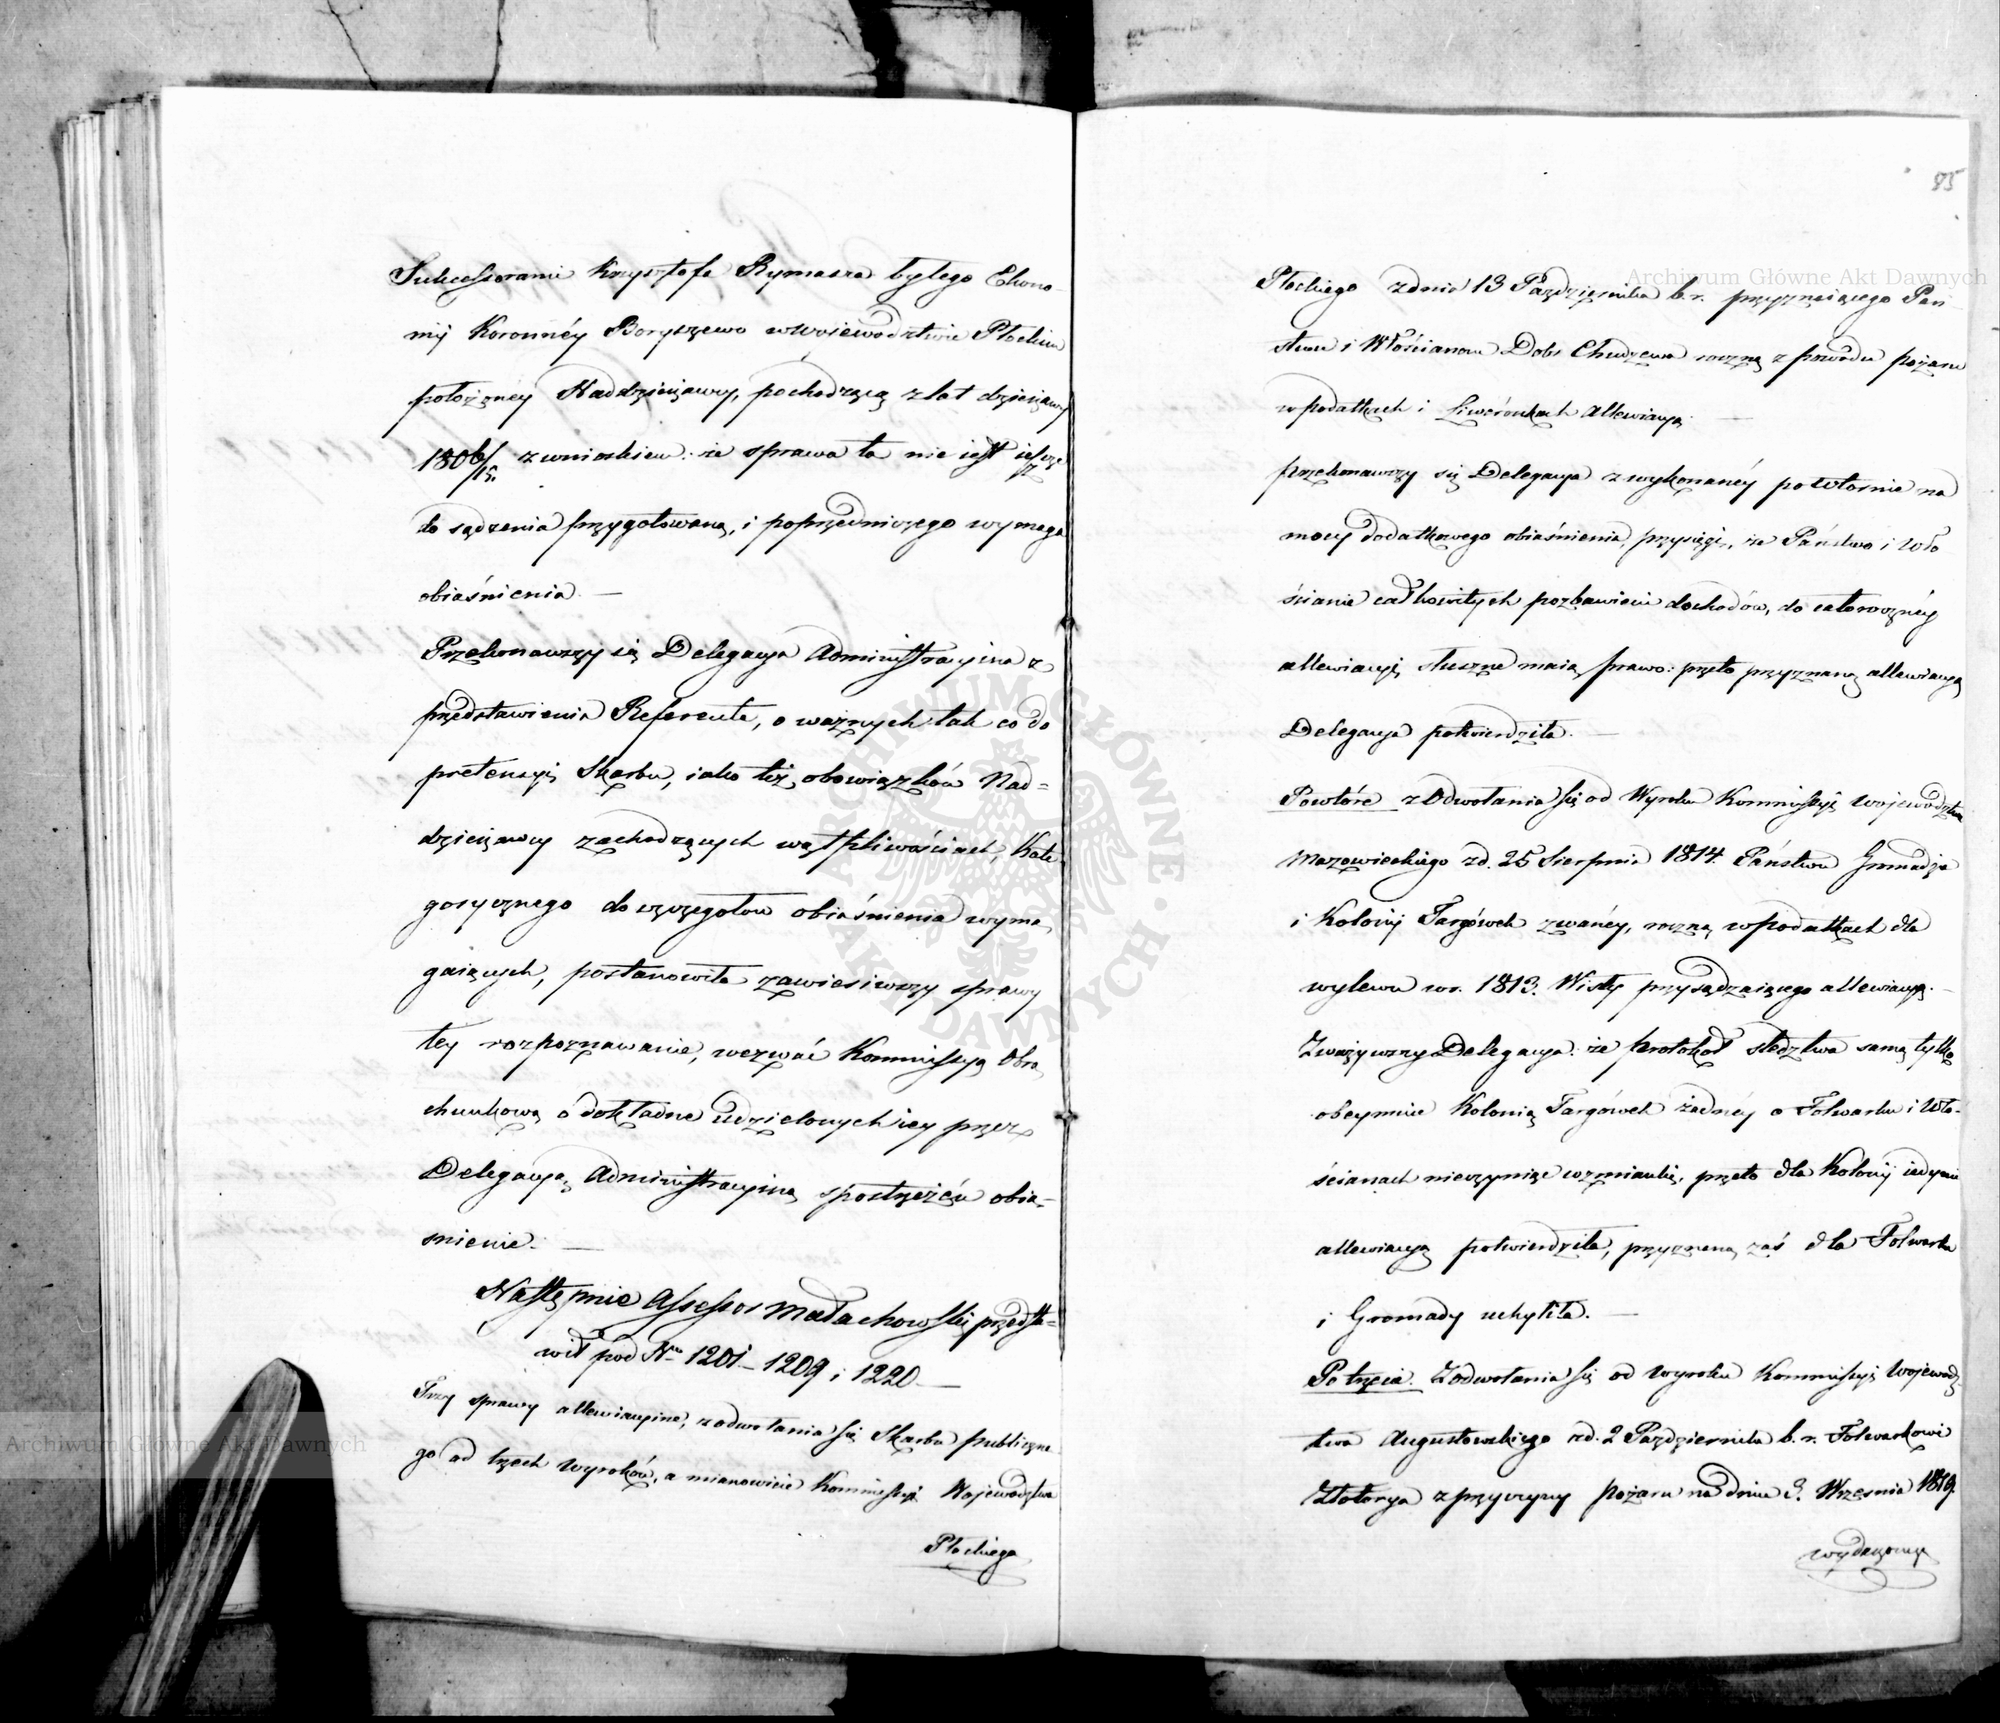 Sukcessorami Krzysztofa Rymasza byłego Ekono-
mij Koronnéy Boryszewo w Województwie Płockim
położonéy Naddzierżawcy, pochodzącą z lat dzierżawy
1806/15. z wnioskiem: że sprawa ta nie iest ieszcze
do sądzenia przygotowaną, i poprzedniczego wymaga
obiaśnienia. —
Przekonawszy się Delegacya Administracyina z
przedstawienia Referenta, o ważnych tak co do
pretensyi Skarbu, iako też obowiązków Nad=
dzierżawcy zachodzących wątpliwościach, Kate
gorycznego do szczegółów obiaśnienia wyma,
gaiących, postanowiła zawiesiwszy sprawy
tey rozpoznawanie, wezwać Kommissyą Obra,
chunkową o dokładne udzielonych iey przez
Delegacyą Administracyiną spostrzeżeń obia=
śnienie. —
Następnie Assessor Małachowski przedsta=
wił pod Nr. 1201 — 1209 i 1220 —
Trzy sprawy allewiacyine, z odwołania się Skarbu publiczne
go od trzech wyroków, a mianowicie Kommissyi Województwa
Płockiego
85
Płockiego z dnia 13 Października b.r. przyznaiącego Pań-
stwu i Włościanom Dóbr Chudzewa roczną z powodu pożaru
w podatkach i Liwerunkach allewiacyą. —
Przekonawszy się Delegacya z wykonanéy powtórnie na
mocy dodatkowego obiaśnienia, przysięgi, że Państwo i Wło
ścianie całkowitych pozbawieni dochodów, do całorocznéy
allewiacyi słuszne maią prawo: przeto przyznaną allewiacyą
Delegacya potwierdziła. —
Powtóre z Odwołania się od Wyroku Kommissyi Województwa
Mazowieckiego z d. 25 Sierpnia 1814. Państwu Gromadzie
i Kolonij Targówek zwanéy, roczną w podatkach dla
wylewu w r. 1813. Wisły przysądzaiącego allewiacyą. —
Zważywszy Delegacya: że protokół śledztwa samą tylko
obeymuie Kolonią Targówek żadnéy o Folwarku i Wło-
ścianach nieczyniąc wzmianki, przeto dla Kolonij iedynie
allewiacyą potwierdziła, przyznaną zaś dla Folwarku
i Gromady uchyliła. —
Po trzecie. Z odwołania się od Wyroku Kommissyi Wojewódz
twa Augustowskiego z d. 2 Października b.r. Folwarkowi
Złotorya z przyczyny pożaru na dniu 3. Września 1819.
wydarzonego
Archiwum Główne Akt Dawnych
Archiwum Główne Akt Dawnych
ARCHIWUM GŁÓWNE AKT DAWNYCH